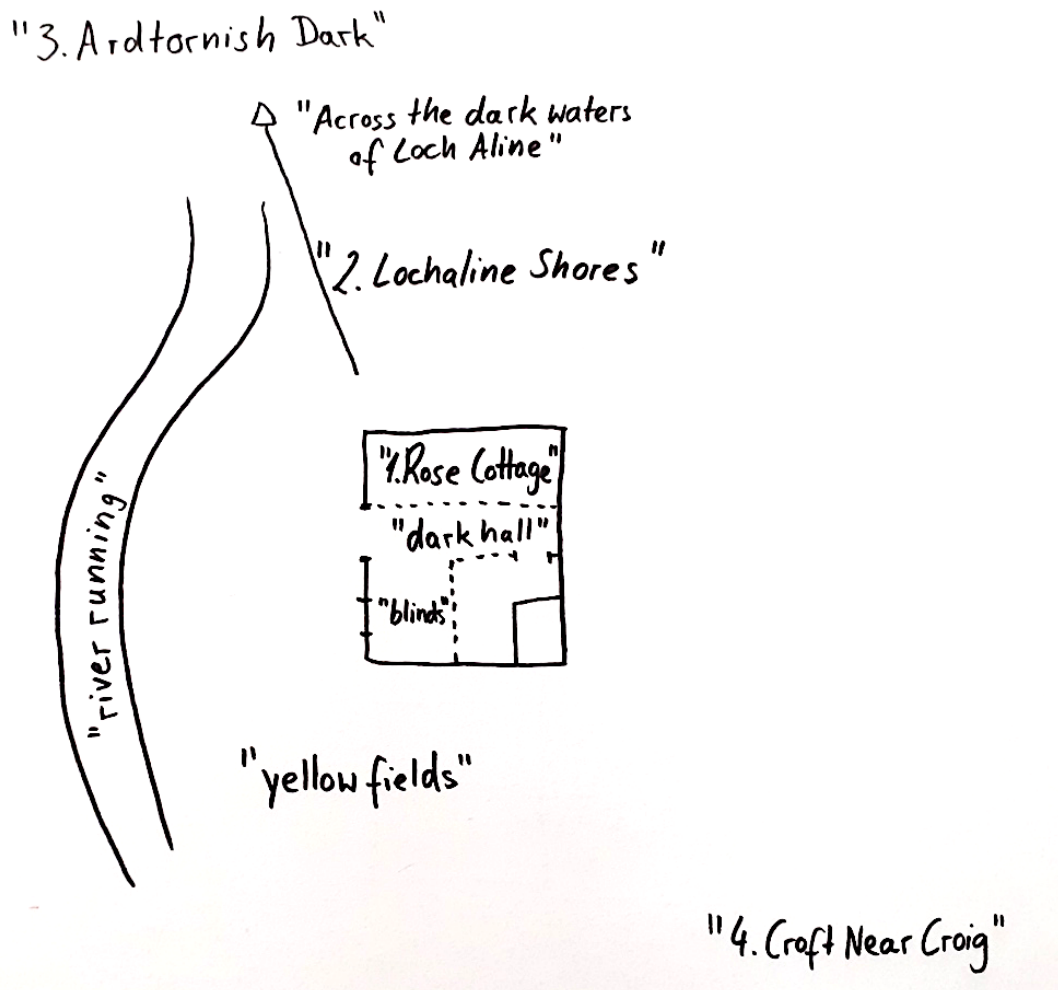 "3. Ardtornish Dark"
"Across the dark waters
of Loch Aline"
"2. Lochaline Shores"
"1. Rose Cottage"
"dark hall"
"blinds"
"river runnning"
"yellow fields"
"4. Croft Near Croig"